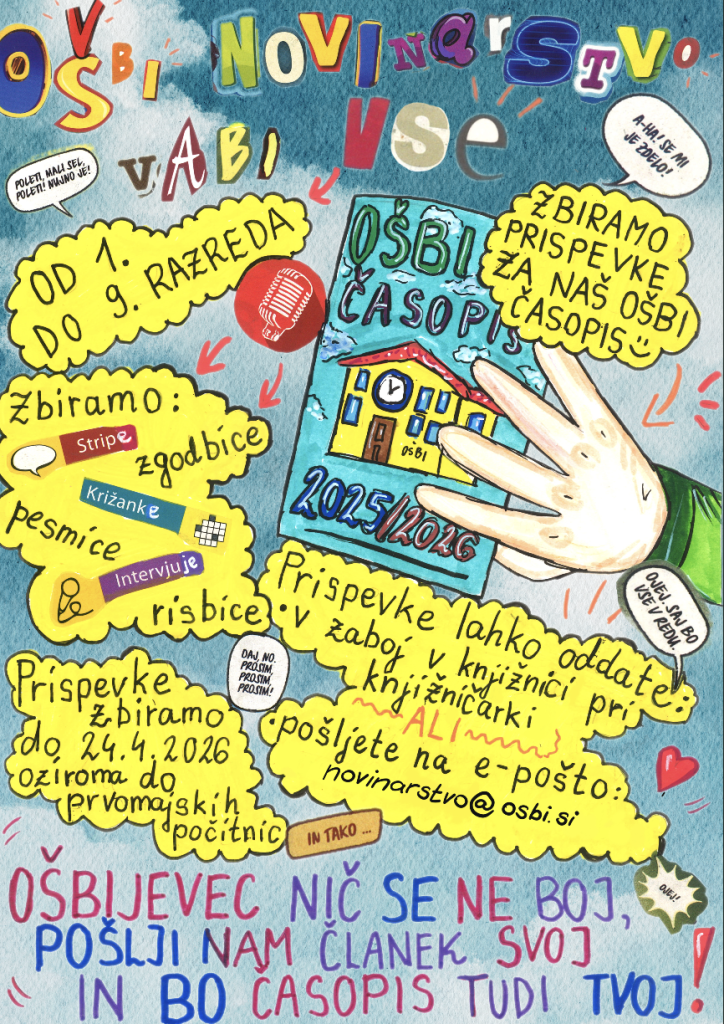 OŠBI NOVINARSTVO
VABI VSE
POLETI, MALI SEL,
POLETI! NUJNO JE!
A-HA! SE MI
JE ZDELO!
OD 1.
DO 9. RAZREDA
OŠBI
ČASOPIS
V
OŠBI
2025/2026
ZBIRAMO
PRISPEVKE
ZA NAŠ OŠBI
ČASOPIS
Zbiramo:
Stripe
zgodbice
Križanke
pesmice
Intervjuje
risbice
OJEJ. SAJ BO
VSE V REDU.
DAJ, NO.
PROSIM,
PROSIM,
PROSIM!
Prispevke
zbiramo
do 24.4.2026
oziroma do
prvomajskih
počitnic
Prispevke lahko oddate:
• v zaboj v knjižnici pri
knjižničarki
ALI
• pošljete na e-pošto:
novinarstvo@osbi.si
IN TAKO ...
OJEJ!
OŠBIJEVEC NIČ SE NE BOJ,
POŠLJI NAM ČLANEK SVOJ
IN BO ČASOPIS TUDI TVOJ!